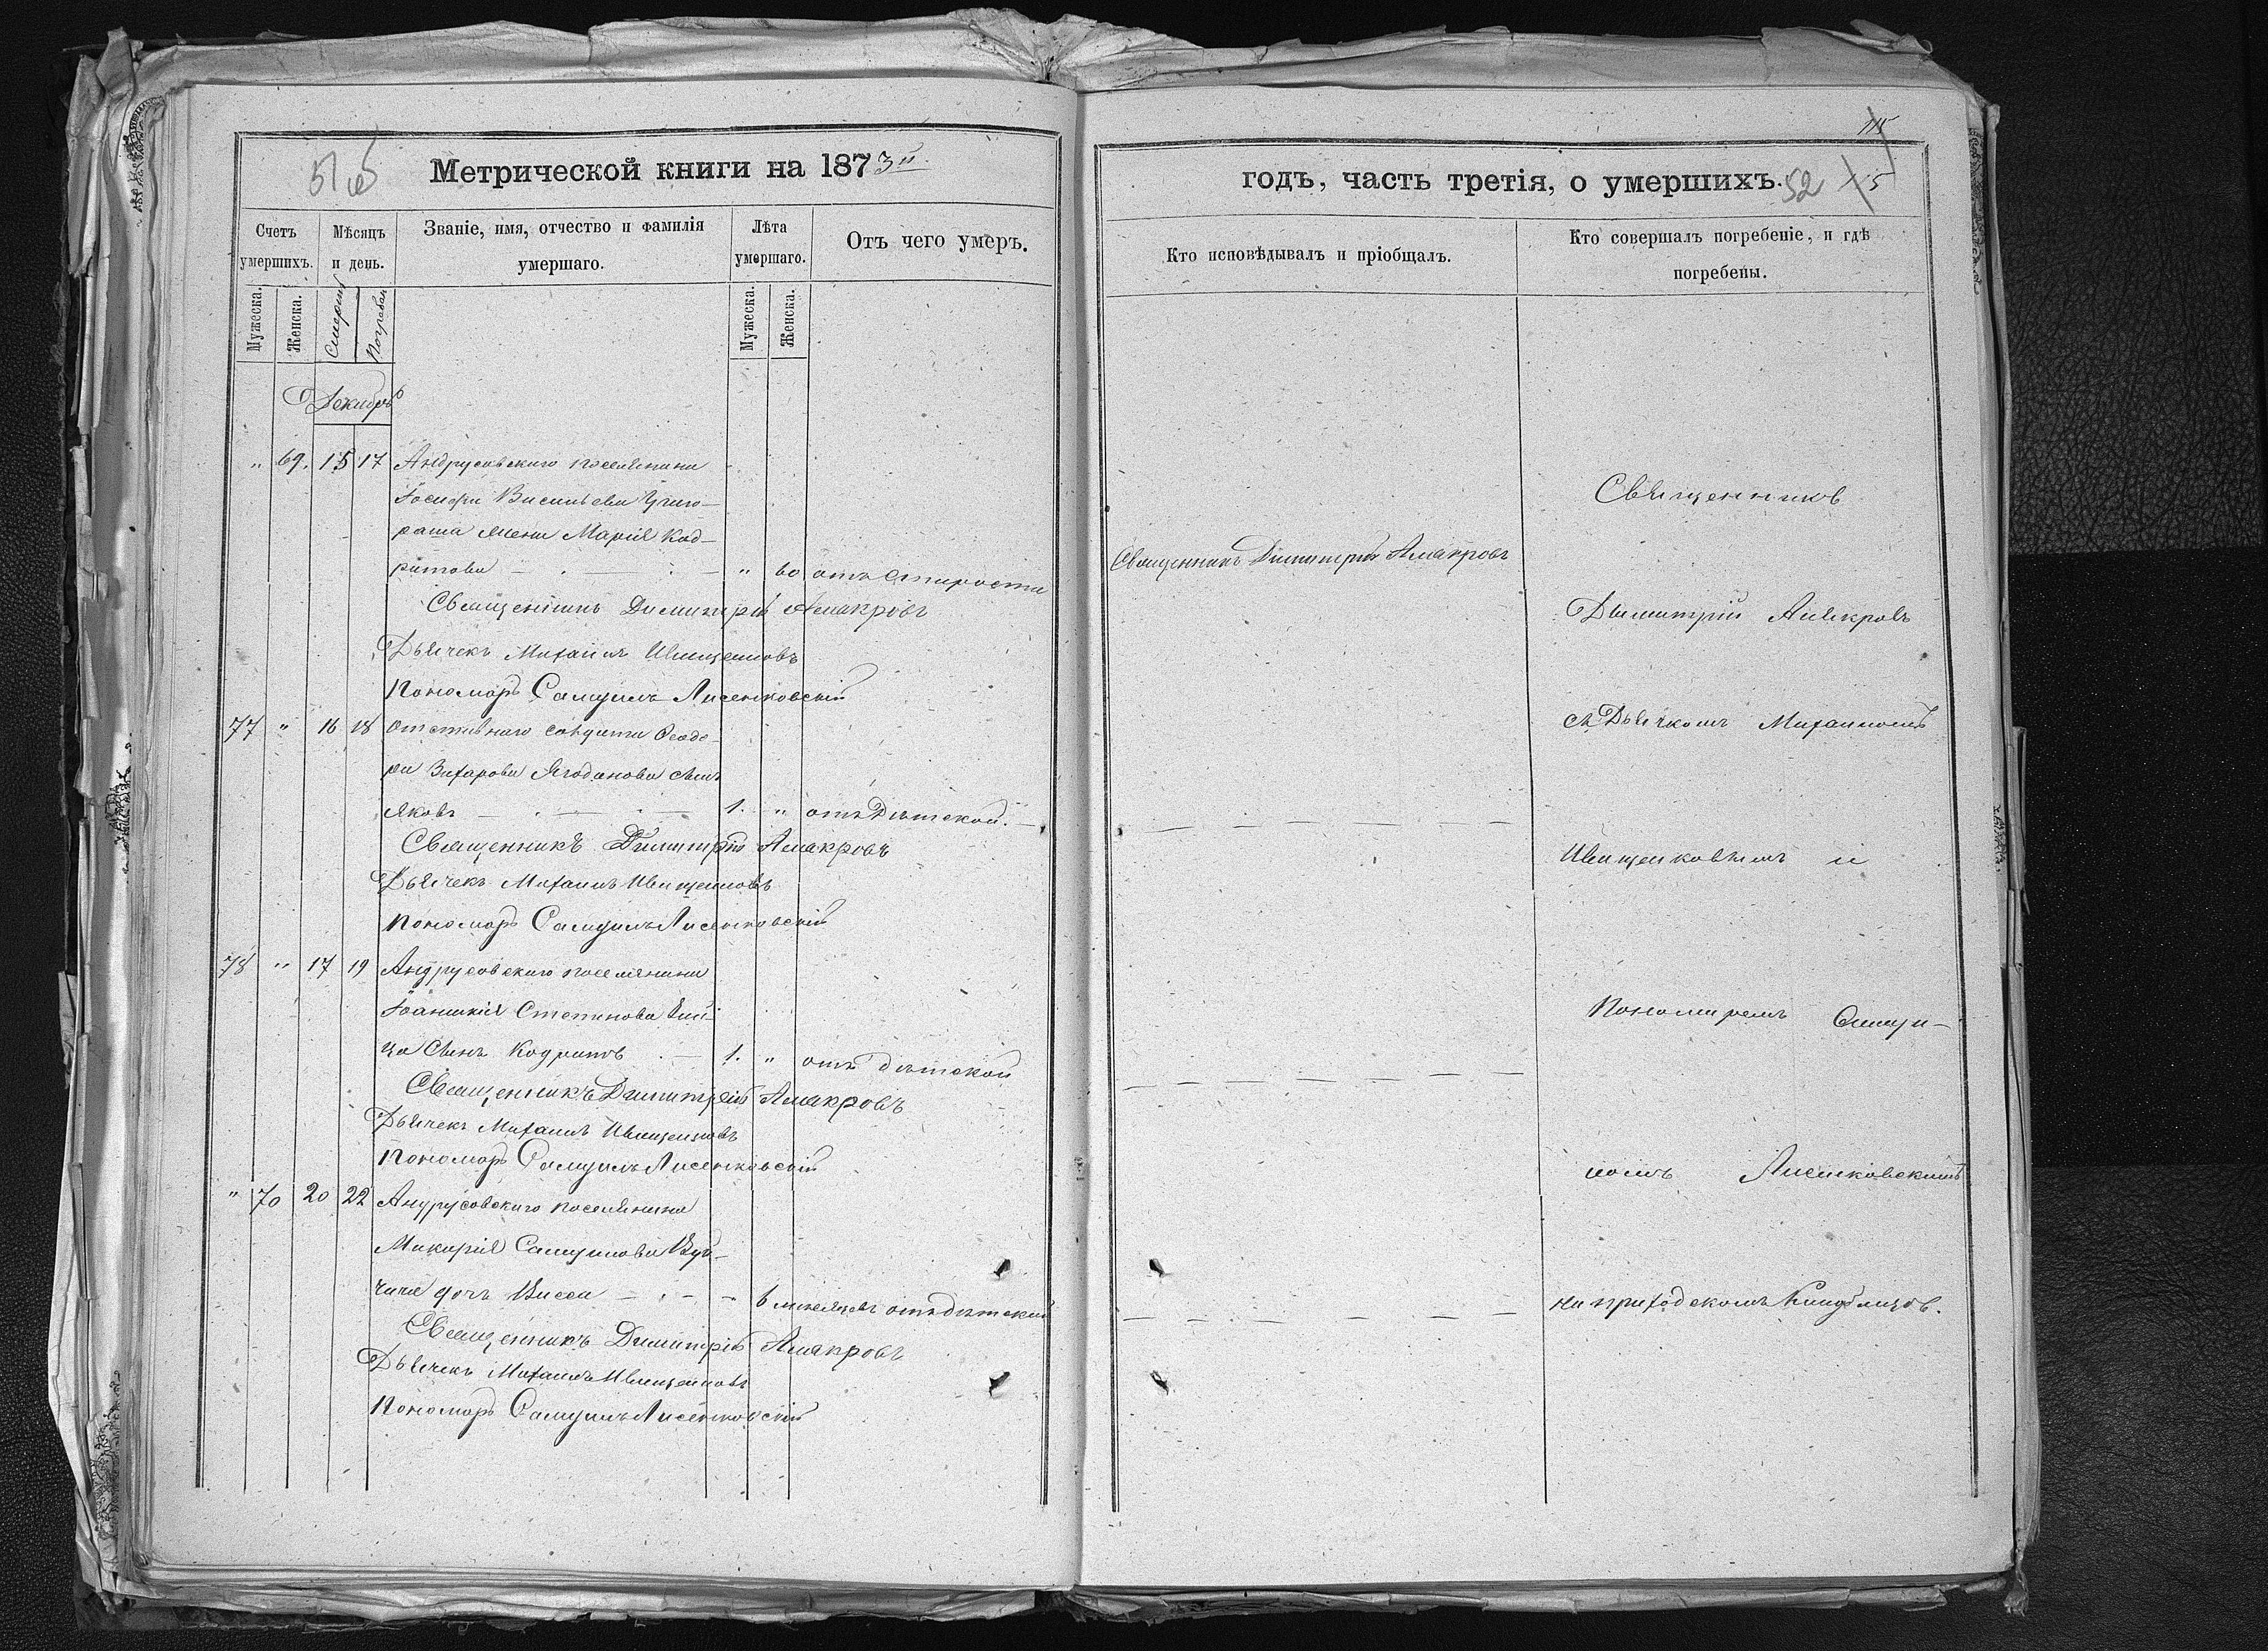 Метрической книги на 1873й
Счетъ умершихъ.
Мѣсяцъ и день.
Званіе, имя, отчество и фамилія умершаго.
Лѣта умершаго.
Отъ чего умеръ.
Мужеска.
Женска.
Смерти
Погребен.
Мужеска.
Женска.
Декабрь
" 69. 15 17 Андрусовскаго поселянина
Іосифа Васильева
раша жена Марія Код-
ратова " 60 отъ старости
Священникъ Димитрій Амакровъ
Дьячекъ Михаилъ Иващенковъ
Пономарь Самуилъ Лисенковскій
77 " 16 18 Отставнаго солдата Ѳеодо-
ра Захарова сынъ
Яковъ 1. " отъ Дѣтской.
Священникъ Димитрій Амакровъ
Дьячекъ Михаилъ Иващенковъ
Пономарь Самуилъ Лисенковскій
78 " 17 19 Андрусовскаго поселянина
Іоанникія Степанова
ца сынъ Кодратъ 1. " отъ дѣтской
Священникъ Димитрій Амакровъ
Дьячекъ Михаилъ Иващенковъ
Пономарь Самуилъ Лисенковскій
" 70 20 22 Андрусовскаго поселянина
Макарія Самуилова
дочь Васса 6 мѣсяцевъ отъ дѣтской
Священникъ Димитрій Амакровъ
Дьячекъ Михаилъ Иващенковъ
Пономарь Самуилъ Лисенковскій
115
годъ, часть третія, о умершихъ. 52
Кто исповѣдывалъ и пріобщалъ.
Кто совершалъ погребеніе, и гдѣ погребены.
Священникъ Димитрій Амакровъ
Священникъ
Димитрій Амакровъ
съ Дьячкомъ Михаиломъ
Иващенковымъ и
Пономаремъ Самуи-
ломъ Лисенковскимъ
на приходскомъ кладбищѣ.